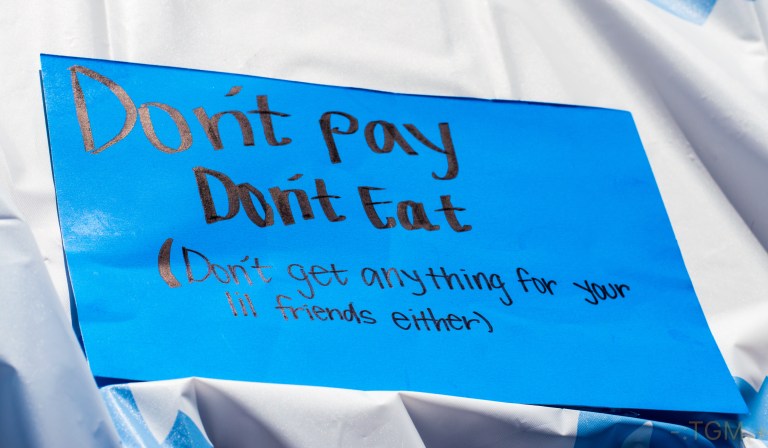 Don't pay
Don't Eat
(Don't get anything for your
lil friends either)
TGM